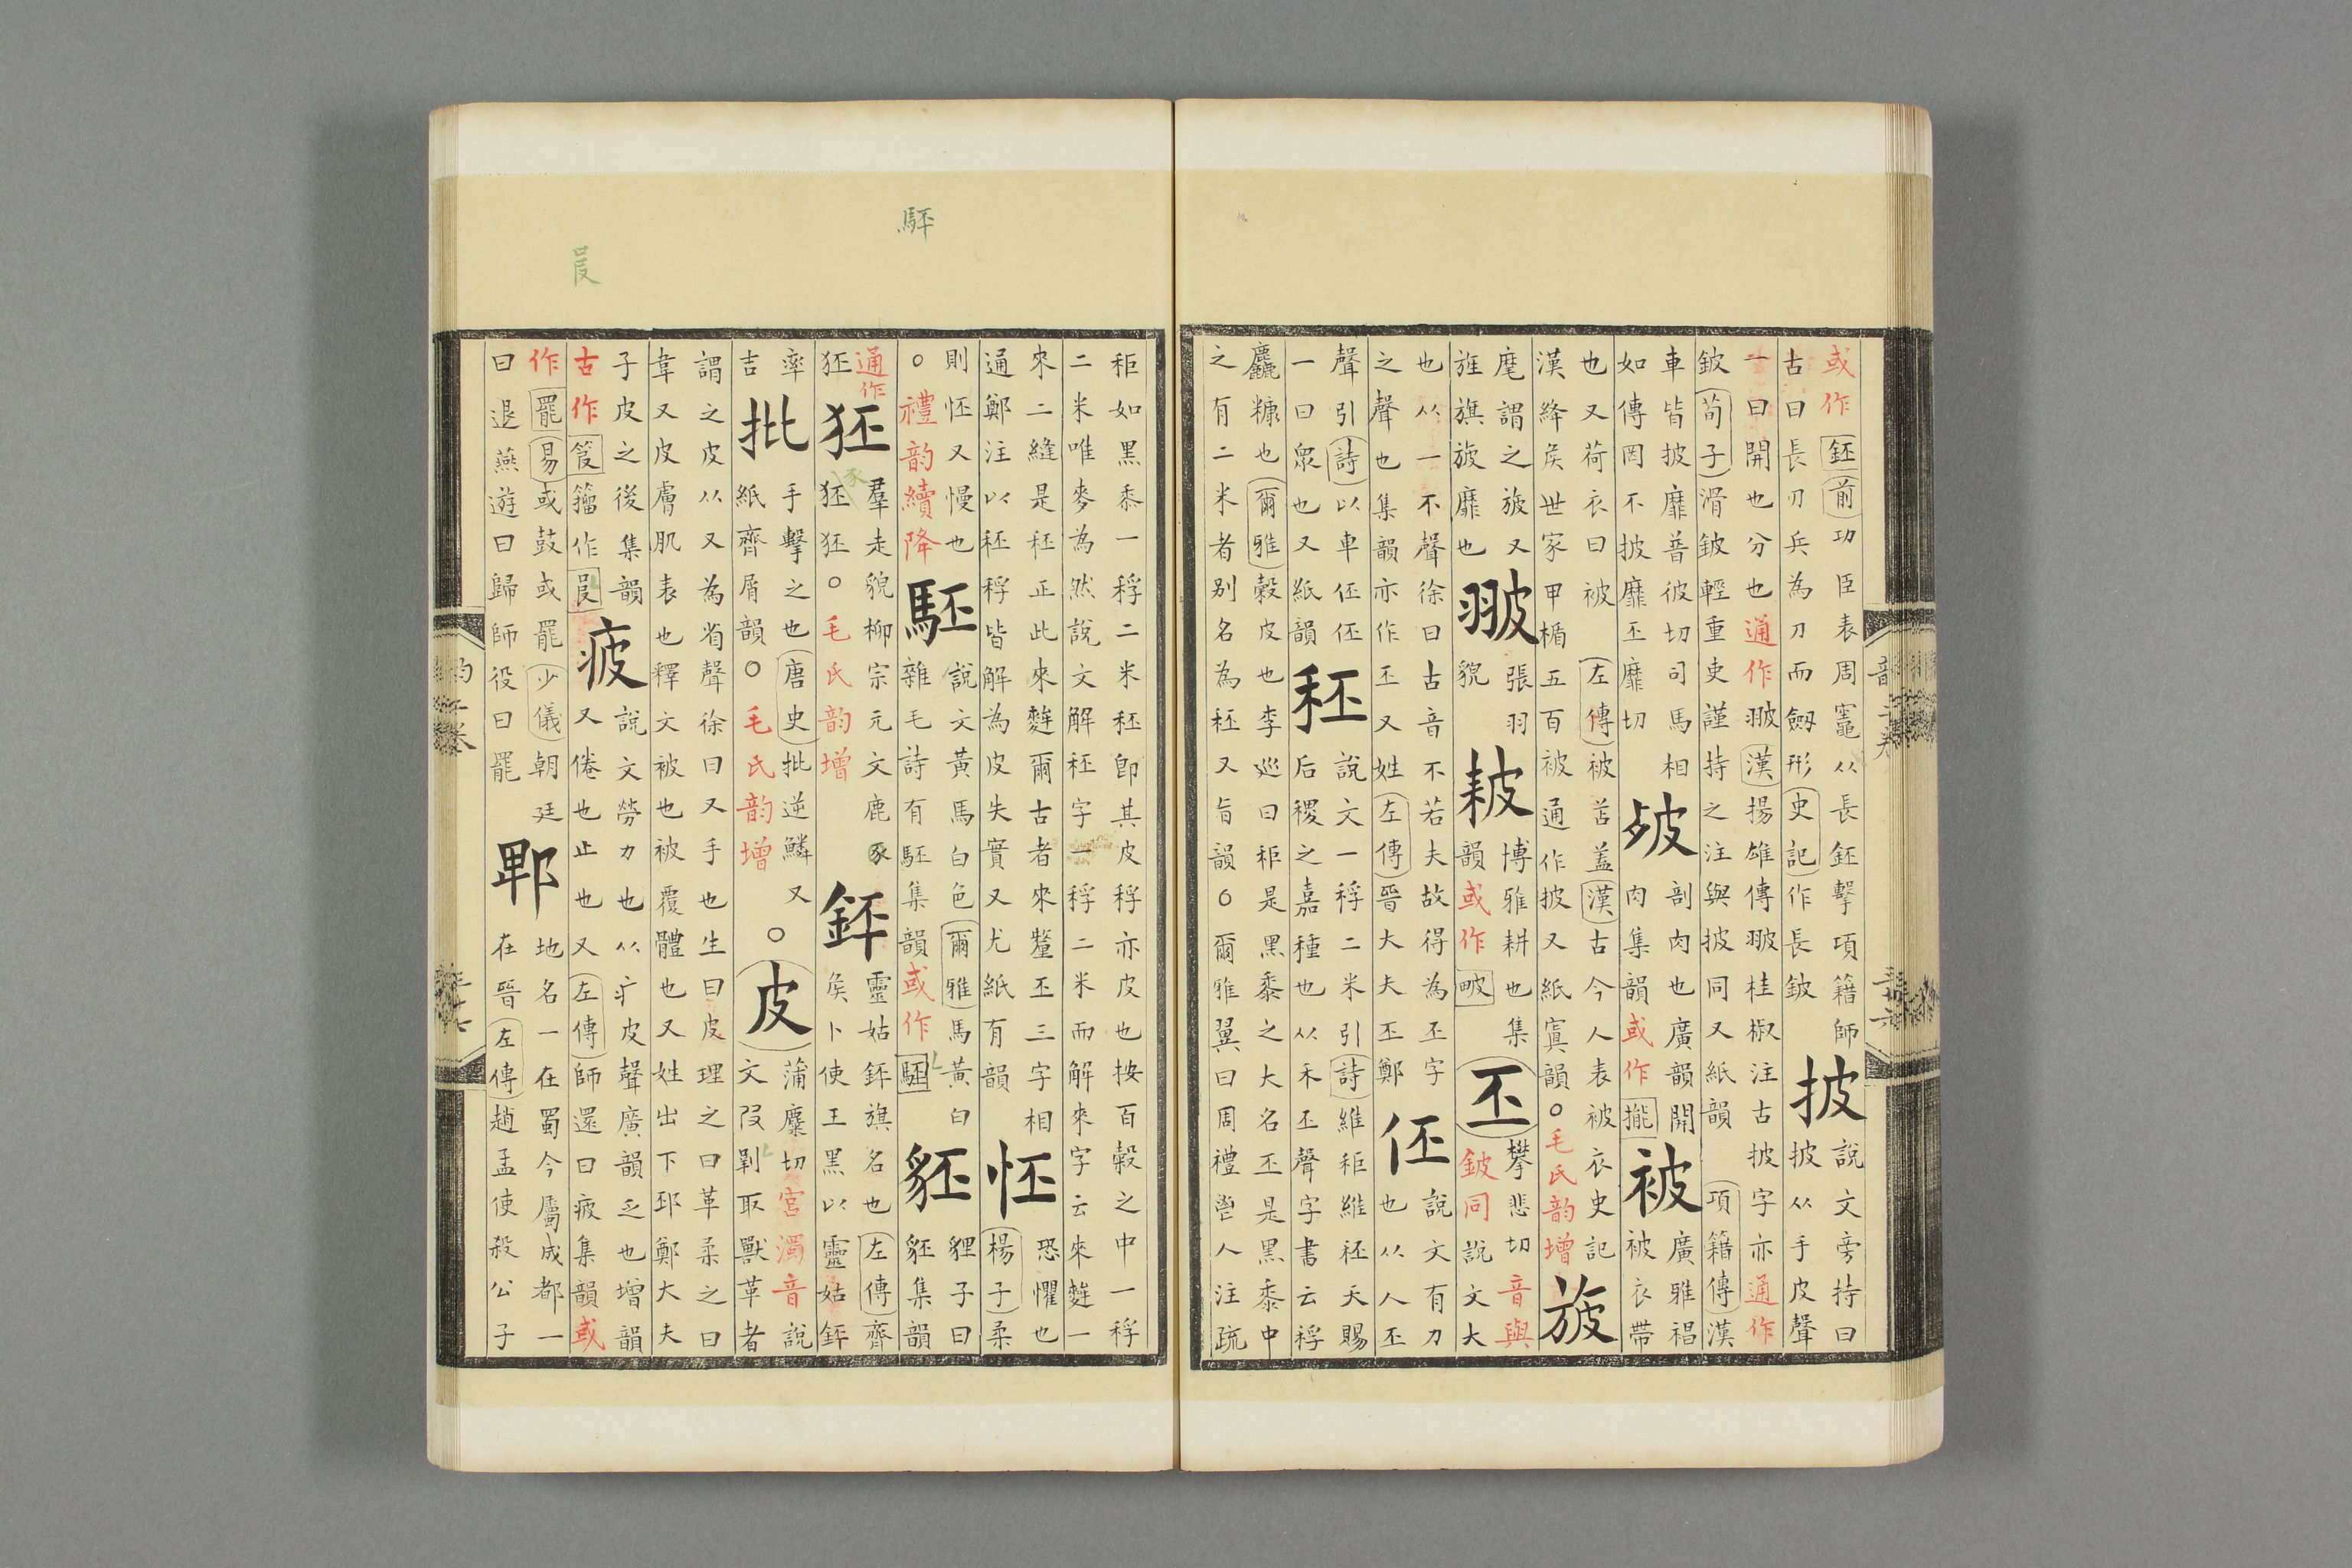 或作鉟前功臣表周竈从長鉟擊項籍師
古曰長刃兵為刀而劔形史記作長鈹
披
說文旁持曰
披从手皮聲
一曰開也分也通作翍漢揚雄傳翍桂椒注古披字亦通作
鈹荀子滑鈹輕重吏謹持之注與披同又紙韻項籍傳漢
車皆披靡普彼切司馬相
如傳罔不披靡丕靡切
㱟
剖肉也廣韻開
肉集韻或作㩺
被
廣雅裮
被衣帶
也又荷衣曰被左傳被苫蓋漢古今人表被衣史記
漢絳侯世家甲楯五百被通作披又紙寘韻○毛氏韵增
旇
麾謂之旇又
旌旗旇靡也
翍
張羽
貌
耚
博雅耕也集
韻或作
丕
攀悲切音與
鈹同說文大
也从一不聲徐曰古音不若夫故得為丕字
之聲也集韻亦作丕又姓左傳晉大夫丕鄭
伾
說文有力
也从人丕
聲引詩以車伾伾
一曰衆也又紙韻
秠
說文一稃二米引詩維秬維秠天賜
后稷之嘉種也从禾丕聲字書云稃
麤糠也爾雅穀皮也李巡曰秬是黑黍之大名丕是黑黍中
之有二米者别名為秠又旨韻○爾雅翼曰周禮鬯人注疏
秬如黑黍一稃二米秠卽其皮稃亦皮也按百穀之中一稃
二米唯麥為然說文解秠字一稃二米而解來字云來麰一
來二縫是秠正此來麰爾古者來丕三字相
通鄭注以秠稃皆解為皮失實又尤紙有韻
怌
恐懼也
楊子柔
則怌又慢也
○禮韵續降
駓
說文黃馬白色爾雅馬黃白
雜毛詩有駓集韻或作
豾
貍子曰
豾集韻
通作
狉
狉
羣走貌柳宗元文鹿豕
狉狉○毛氏韵增
鉟
靈姑鉟旗名也左傳齊
侯卜使王黑以靈姑鉟
率
吉
批
手擊之也唐史批逆鱗又
紙齊屑韻○毛氏韵增
○皮
蒲麋切宮濁音說
文剝取獸革者
謂之皮从又為省聲徐曰又手也生曰皮理之曰革柔之曰
韋又皮膚肌表也釋文被也被覆體也又姓出下邳鄭大夫
子皮之後集韻
古作籀作
疲
說文勞力也从疒皮聲廣韻乏也增韻
又倦也止也又左傳師還曰疲集韻或
作罷易或鼓或罷少儀朝廷
曰退燕遊曰歸師役曰罷
郫
地名一在蜀今屬成都一
在晉左傳趙孟使殺公子